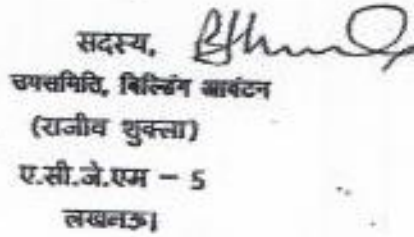 सदस्य,
उपसमिति, बिल्डिंग आवंटन
(राजीव शुक्ला)
ए.सी.जे.एम – 5
लखनऊ।